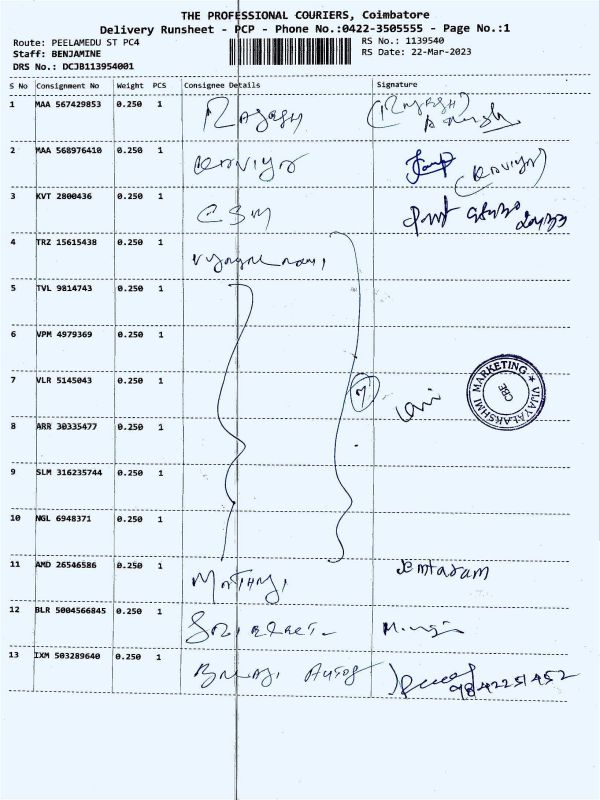 THE PROFESSIONAL COURIERS, Coimbatore
Delivery Runsheet - PCP - Phone No.:0422-3505555 - Page No.:1
Route: PEELAMEDU ST PC4
RS No.: 1139540
Staff: BENJAMINE
RS Date: 22-Mar-2023
DRS No.: DCJB113954001
S No Consignment No Weight PCS Consignee Details Signature
1 MAA 567429853 0.250 1
2 MAA 568976410 0.250 1
3 KVT 2800436 0.250 1 CSM
4 TRZ 15615438 0.250 1
5 TVL 9814743 0.250 1
6 VPM 4979369 0.250 1
7 VLR 5145043 0.250 1 7
VIJAYALAKSHMI MARKETING
CBE
8 ARR 30335477 0.250 1
9 SLM 316235744 0.250 1
10 NGL 6948371 0.250 1
11 AMD 26546586 0.250 1
12 BLR 5004566845 0.250 1
13 IXM 503289640 0.250 1
9842251452